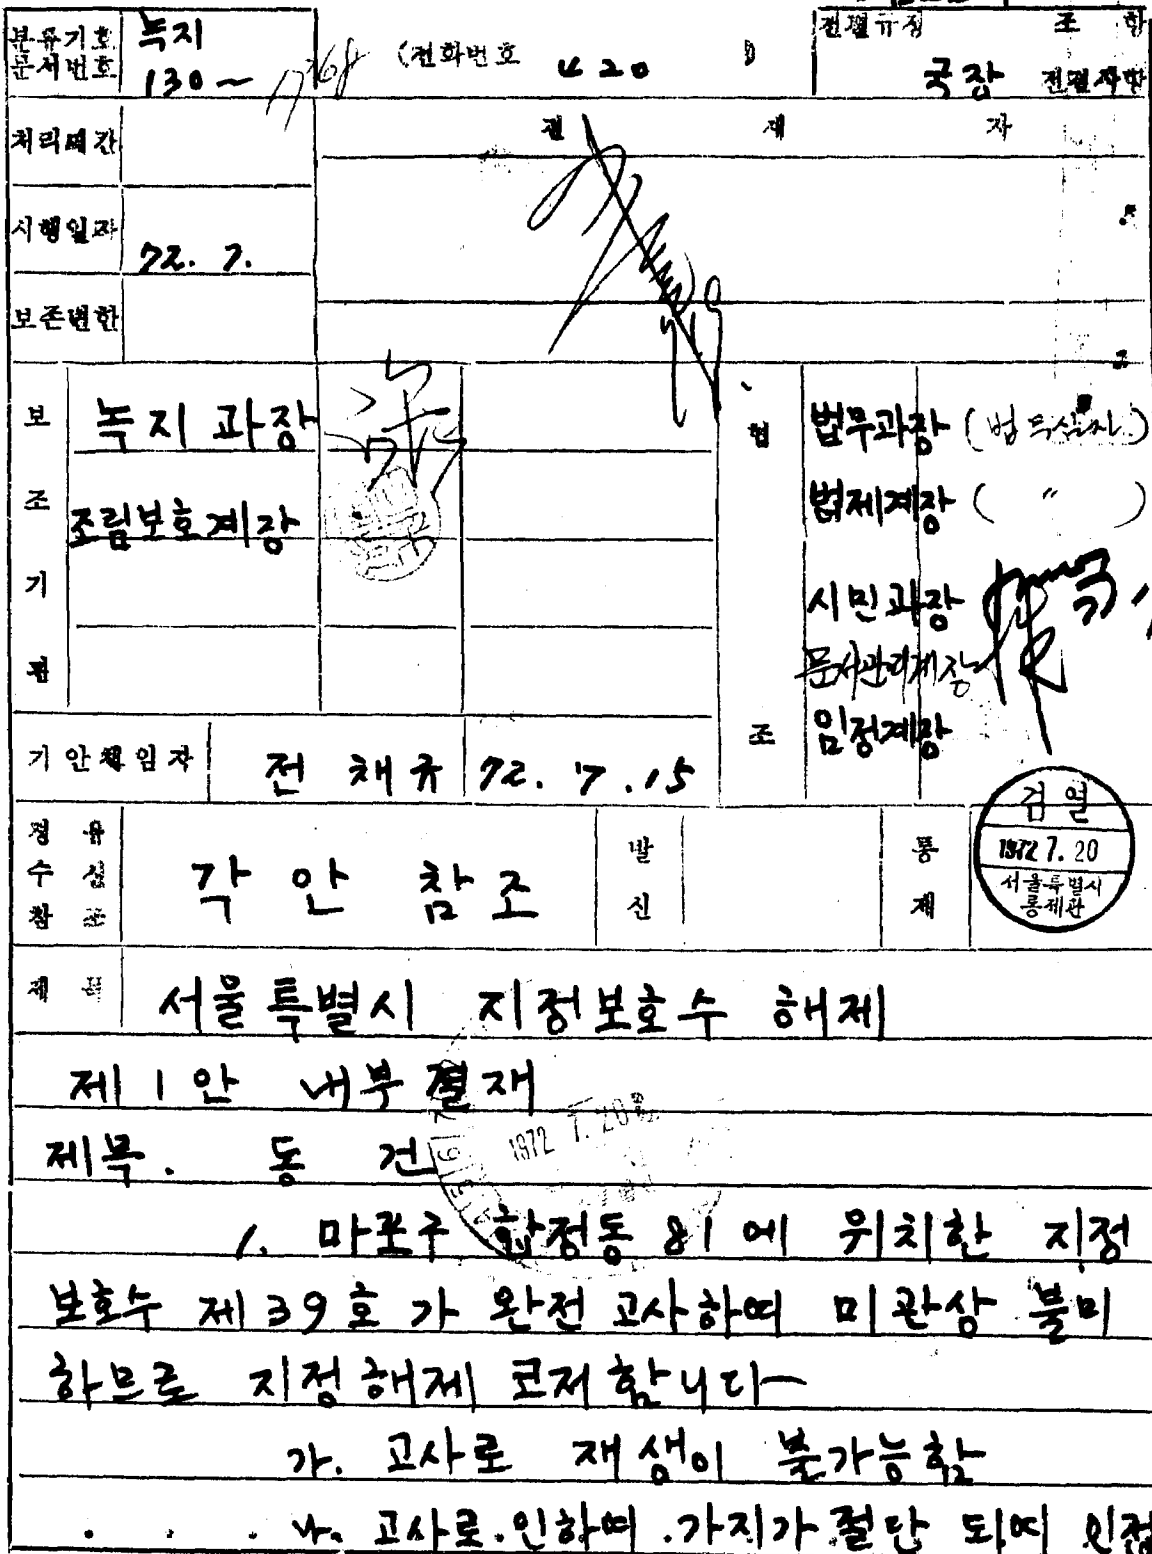 분류기호 문서번호 녹지 130~
(전화번호 420 )
전결규정 조 항
국장 전결사항
처리기간
결 재 자
시행일자 72. 7.
보존연한
보조기관
녹지과장
조림보호계장
협조
법무과장 (법무실장)
법제계장 ( " )
시민과장
문서관리계장
임정계장
기안책임자 전채규 72. 7. 15
경유 수신 참조
각안참조
발신
통제
검열
1972 7. 20
서울특별시
통제관
제목 서울특별시 지정보호수 해제
제1안 내부결재
제목. 동건
1972 7. 20
1. 마포구 합정동 81에 위치한 지정
보호수 제39호가 완전 고사하여 미관상 불미
하므로 지정해제 코저 합니다
가. 고사로 재생이 불가능함
나. 고사로 인하여 가지가 절단 되여 인접